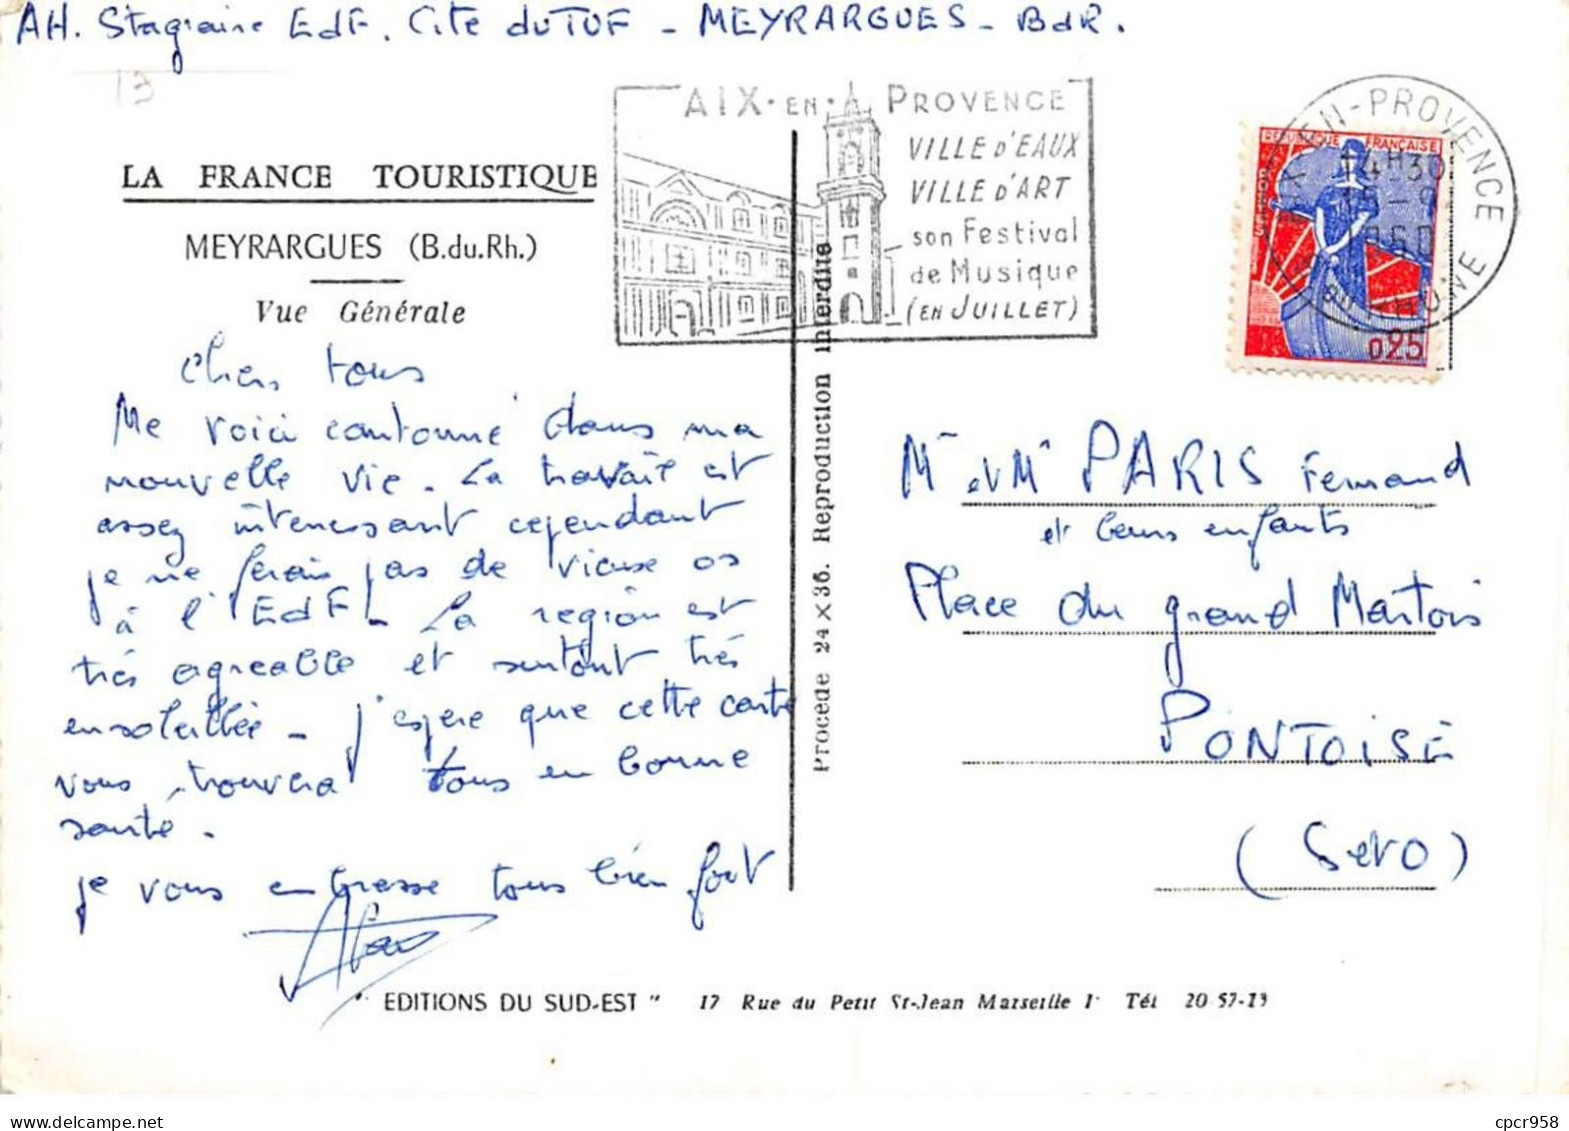 AH. Stagiaire EdF. Cité du TUF - MEYRARGUES - BdR.
13
LA FRANCE TOURISTIQUE
MEYRARGUES (B.du.Rh.)
Vue Générale
AIX-EN-PROVENCE
VILLE D'EAUX
VILLE D'ART
son Festival
de Musique
(EN JUILLET)
EN-PROVENCE
14H30
RHONE
REPUBLIQUE FRANÇAISE
POSTES
0,25
Chers tous
Me voici cantonné dans ma
nouvelle vie. Le travail est
assez intéressant cependant
je ne ferais pas de vieux os
à l'EdF. La région est
très agréable et surtout très
ensoleillée - j'espère que cette carte
vous trouvera tous en bonne
santé.
je vous embrasse tous bien fort
Procédé 24 x 36. Reproduction interdite
Mr et Me PARIS Fernand
et leurs enfants
Place du grand Martois
PONTOISE
(SetO)
" EDITIONS DU SUD-EST " 17 Rue du Petit St-Jean Marseille 1r Tél 20 57-13
cpcr958